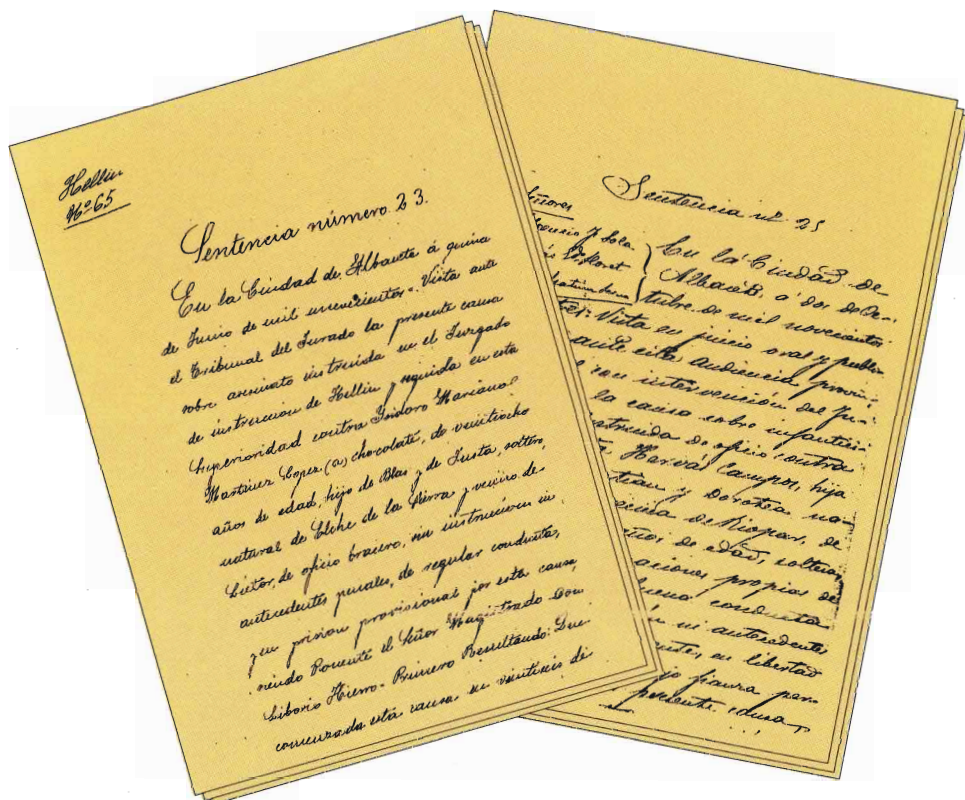 Hellin
Nº 65
Sentencia número 23.
En la Ciudad de Albacete á quince
de Junio de mil novecientos. Vista ante
el Tribunal del Jurado la presente causa
sobre asesinato instruida en el Juzgado
de instruccion de Hellin y seguida en esta
Superioridad contra Isidoro Mariano
Martinez Lopez (a) chocolate, de veintiocho
años de edad, hijo de Blas y de Justa, soltero,
natural de Elche de la Sierra y vecino de
Lietor, de oficio bracero, sin instruccion ni
antecedentes penales, de regular conducta,
y en prision provisional por esta causa,
siendo Ponente el Señor Magistrado Don
Liborio Hierro. Primero Resultando: Que
comenzada esta causa en veintiseis de
Sentencia nº 25
En la Ciudad de
Albacete, a dos de Oc-
tubre de mil novecientos
Vista en juicio oral y publico
ante esta audiencia provin-
con intervención del Ju-
la causa sobre infantici-
instruida de oficio contra
Campos, hija
y Dorotea, na-
vecina de Riopar, de
de edad, soltera,
propias de
buena conducta
ni antecedentes
en libertad
fianza por
presente causa